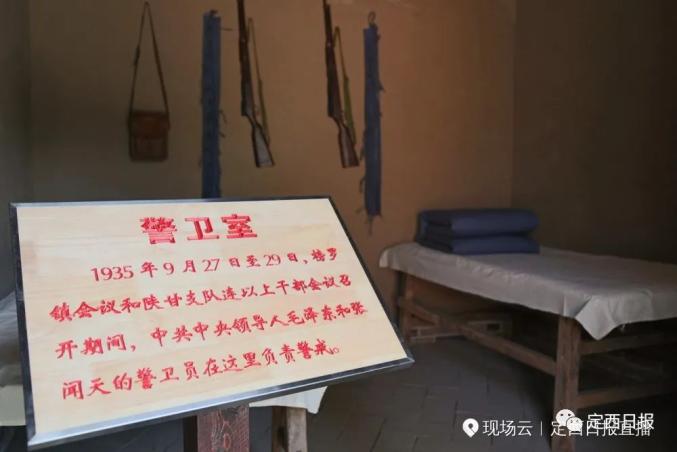 警卫室
1935年9月27日至29日，榜罗
镇会议和陕甘支队连以上干部会议召
开期间，中共中央领导人毛泽东和张
闻天的警卫员在这里负责警戒。
现场云｜定西日报直播
定西日报